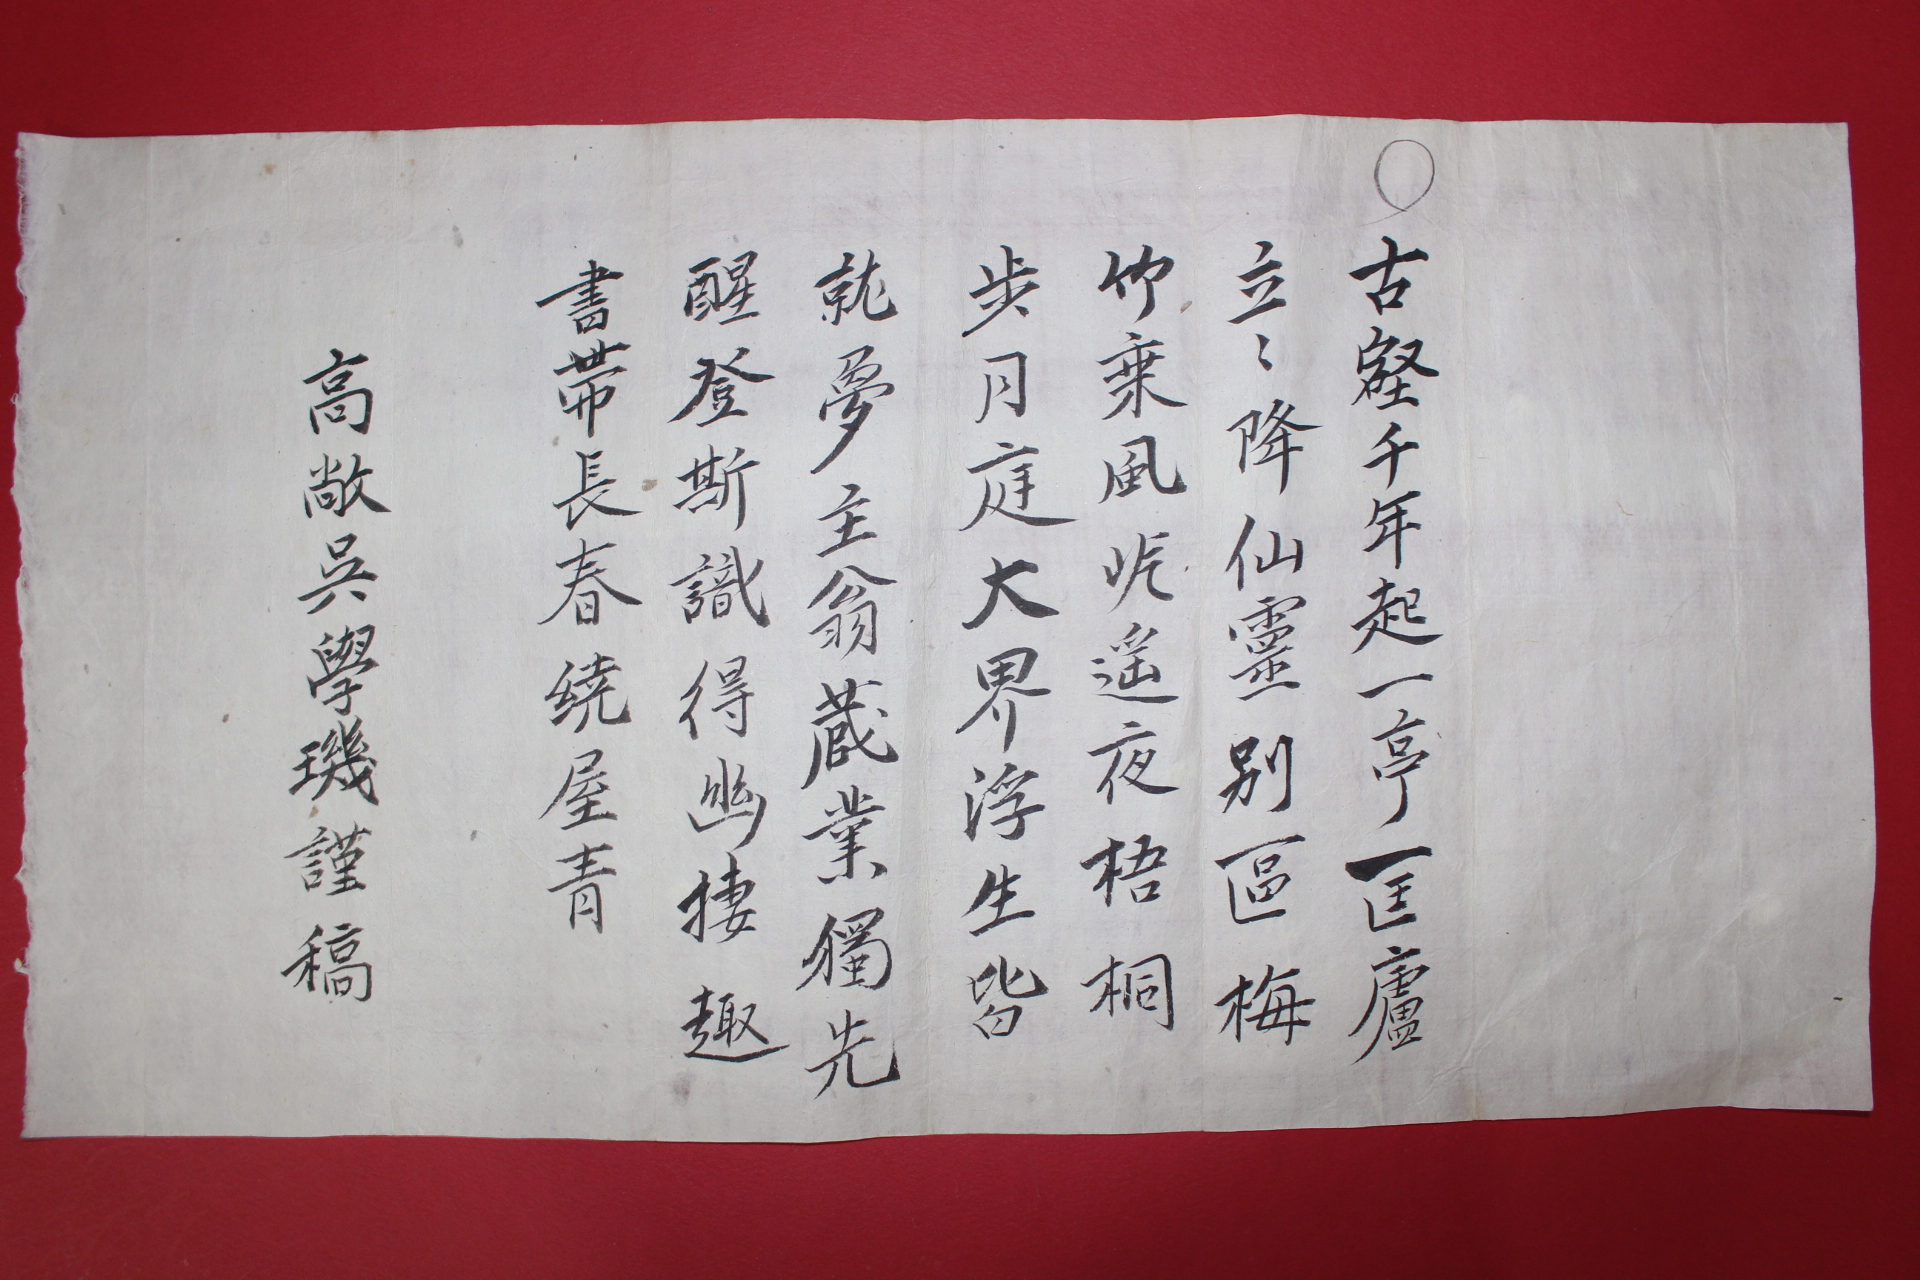 古壑千年起一亭匡廬
立〻降仙靈別區梅
竹乘風屹遙夜梧桐
步月庭大界浮生皆
就夢主翁蔵業獨先
醒登斯識得幽棲趣
書帶長春繞屋青
高敞吳學璣謹稿